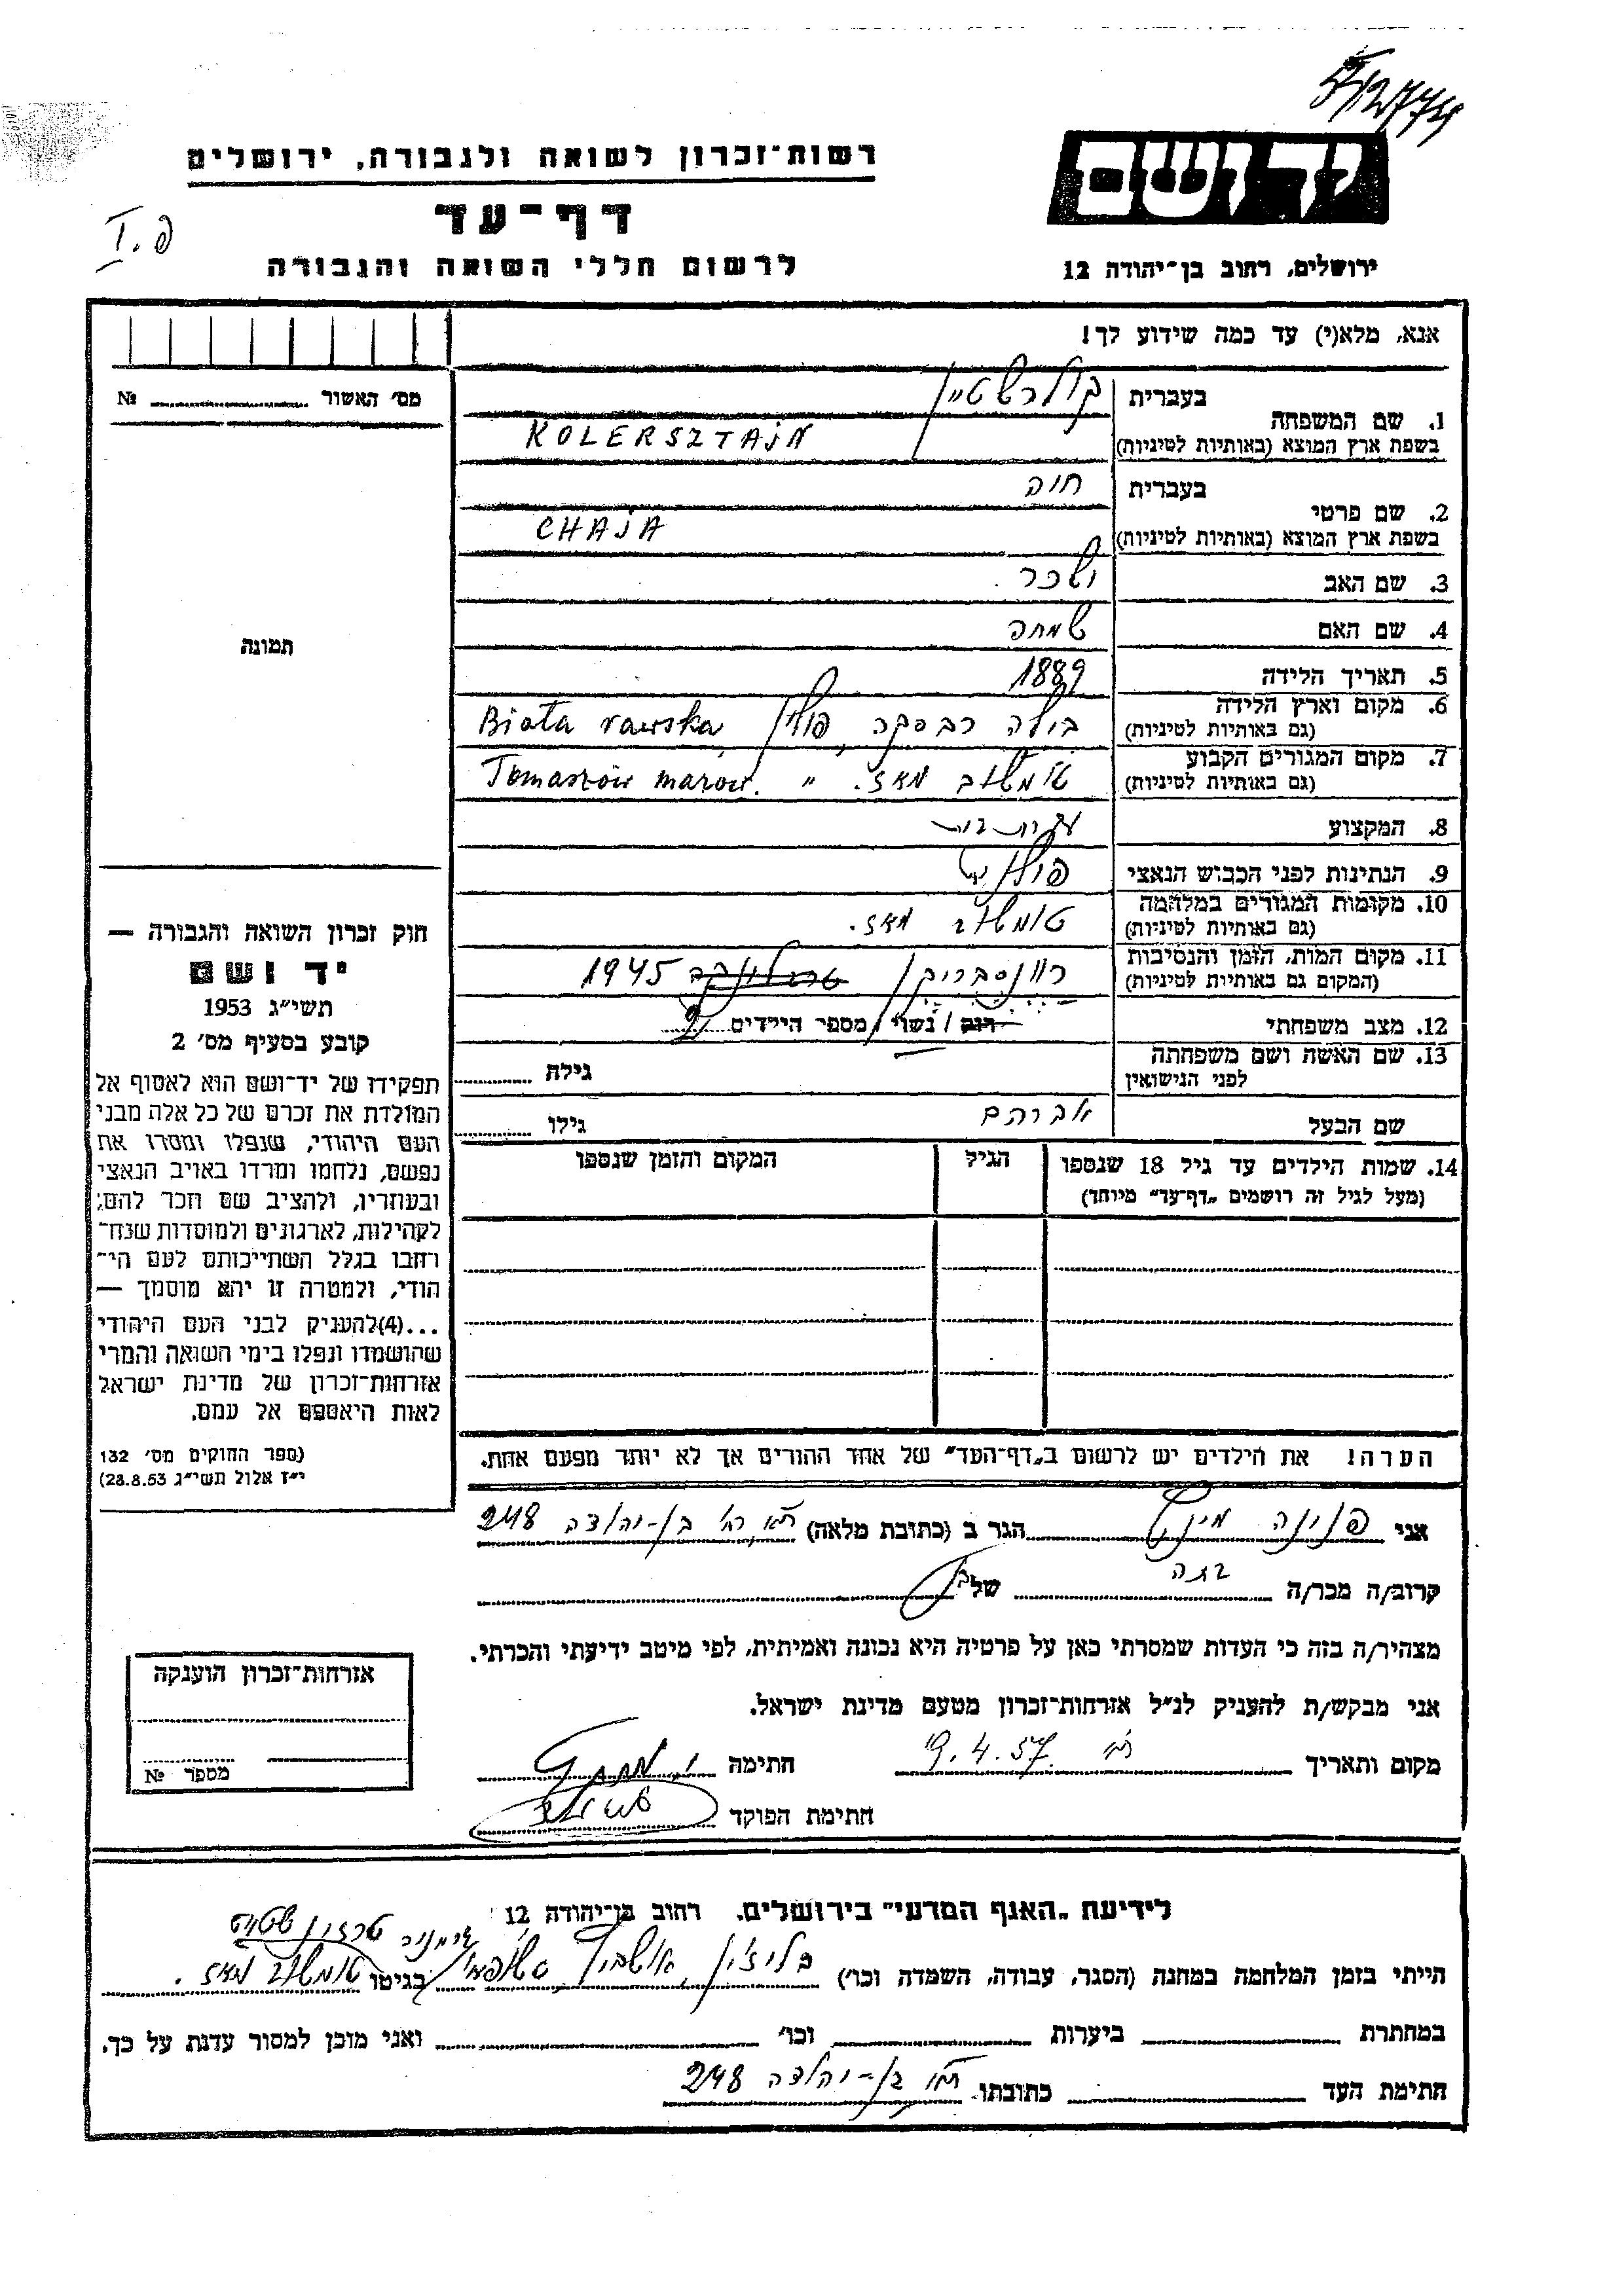 רשות־זכרון לשואה ולגבורה, ירושלים
דף־עד
לרשום חללי השואה והגבורה
יד ושם
ירושלים, רחוב בן־יהודה 12
פ. I
אנא, מלא(י) עד כמה שידוע לך!
מס׳ האשור № 
תמונה
1. שם המשפחה בעברית קולרשטיין
בשפת ארץ המוצא (באותיות לטיניות) KOLERSZTAJN
2. שם פרטי בעברית חיה
בשפת ארץ המוצא (באותיות לטיניות) CHAJA
3. שם האב יששכר
4. שם האם שמחה
5. תאריך הלידה 1889
6. מקום וארץ הלידה (גם באותיות לטיניות) בילה רבסקה, פולין Biała rawska,
7. מקום המגורים הקבוע (גם באותיות לטיניות) טומשוב מאז. " Tomaszów mazow.
8. המקצוע עקרת בית
9. הנתינות לפני הכבוש הנאצי פולנית
10. מקומות המגורים במלחמה (גם באותיות לטיניות) טומשוב מאז.
11. מקום המות, הזמן והנסיבות (המקום גם באותיות לטיניות) טרבלינקה 1945
12. מצב משפחתי רוק / נשוי / מספר הילדים 2
13. שם האשה ושם משפחתה לפני הנישואין גילה
שם הבעל אברהם גילו
14. שמות הילדים עד גיל 18 שנספו הגיל המקום והזמן שנספו
(מעל לגיל זה רושמים „דף־עד״ מיוחד)
הערה! את הילדים יש לרשום ב„דף־העד״ של אחד ההורים אך לא יותר מפעם אחת.
חוק זכרון השואה והגבורה —
יד ושם
תשי״ג 1953
קובע בסעיף מס׳ 2
תפקידו של יד־ושם הוא לאסוף אל
המולדת את זכרם של כל אלה מבני
העם היהודי, שנפלו ומסרו את
נפשם, נלחמו ומרדו באויב הנאצי
ובעוזריו, ולהציב שם וזכר להם,
לקהילות, לארגונים ולמוסדות שנח־
רחבו בגלל השתייכותם לעם הי־
הודי, ולמטרה זו יהא מוסמך —
...(4)להעניק לבני העם היהודי
שהושמדו ונפלו בימי השואה והמרי
אזרחות־זכרון של מדינת ישראל
לאות היאספם אל עמם.
(ספר החוקים מס׳ 132
י״ז אלול תשי״ג 28.8.53)
אני פנינה מינץ הגר ב (כתובת מלאה) ת״א, רח׳ בן־יהודה 248
קרוב/ה מכר/ה בתה של
מצהיר/ה בזה כי העדות שמסרתי כאן על פרטיה היא נכונה ואמיתית, לפי מיטב ידיעתי והכרתי.
אני מבקש/ת להעניק לנ״ל אזרחות־זכרון מטעם מדינת ישראל.
מקום ותאריך ת״א 9.4.57 חתימה
חתימת הפוקד
אזרחות־זכרון הוענקה
מספר №
לידיעת „האגף המדעי״ בירושלים. רחוב בן־יהודה 12
הייתי בזמן המלחמה במחנה (הסגר, עבודה, השמדה וכו׳) בליז׳ין, אושביץ בגיטו טומשוב מאז.
במחתרת ביערות וכו׳ ואני מוכן למסור עדות על כך.
חתימת העד כתובתו ת״א בן־יהודה 248